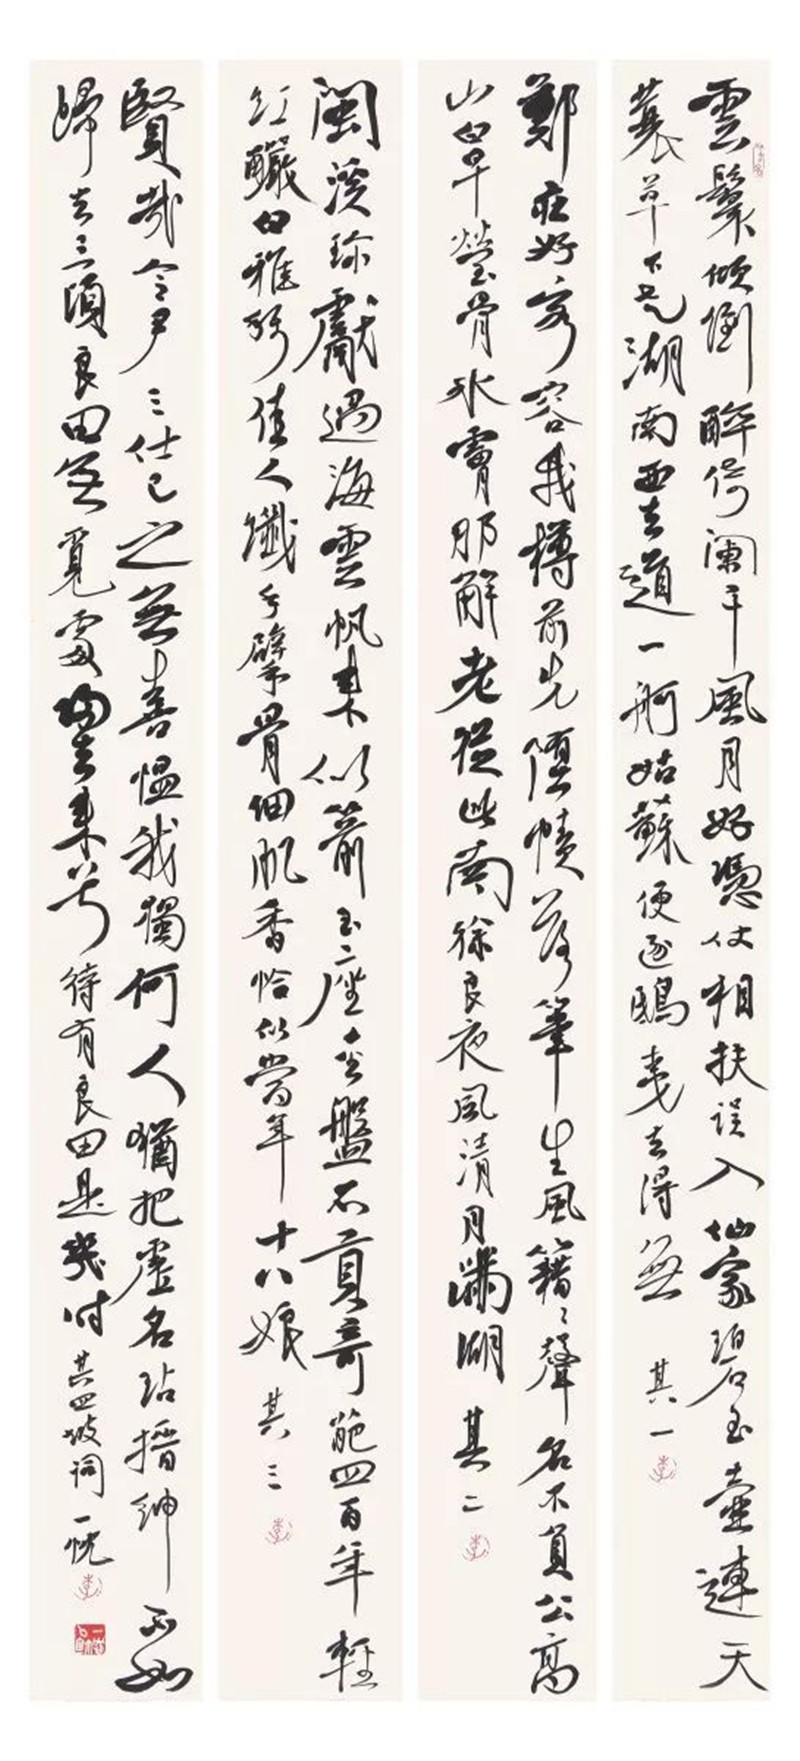 雲鬟傾倒醉倚闌干風月好憑仗相扶誤入仙家碧玉壺連天
衰草下走湖南西去道一舸姑蘇便逐鴟夷去得無 其一
鄭莊好客容我樽前先墮幘落筆生風籍〻聲名不負公高
山白早瑩骨冰膚那解老從此南徐良夜風清月滿湖 其二
閩溪珍獻過海雲帆來似箭玉座金盤不貢奇葩四百年輕
紅釅白雅稱佳人纖手擘骨細肌香恰似當年十八娘 其三
賢哉令尹三仕已之無喜慍我獨何人猶把虛名玷搢紳不如
歸去二頃良田無覓處歸去來兮待有良田是幾時 其四坡詞 一忱